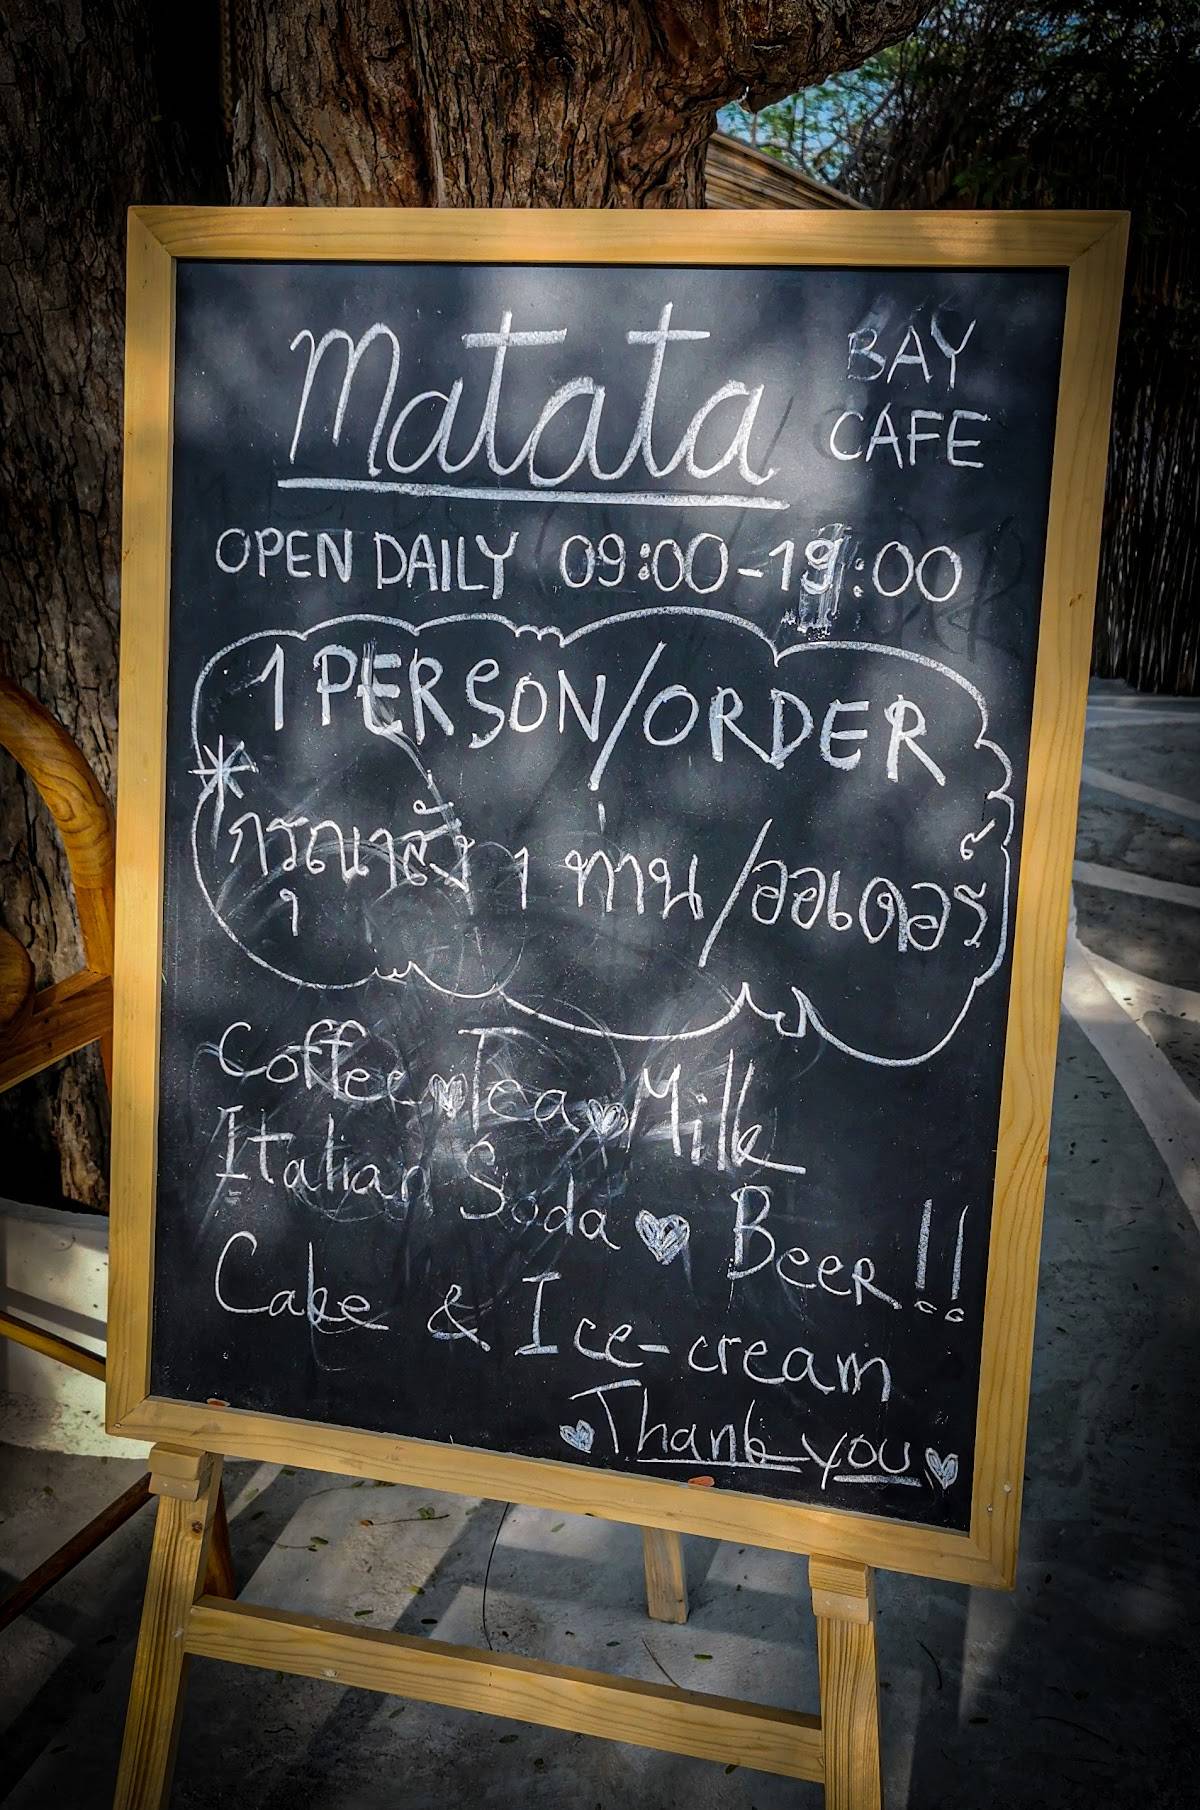 Matata BAY CAFE
OPEN DAILY 09:00-19:00
1 PERSON/ORDER
* กรุณาสั่ง 1 ท่าน/ออเดอร์
Coffee ♥ Tea ♥ Milk
Italian Soda ♥ Beer!!
Cake & Ice-cream
♥ Thank you ♥